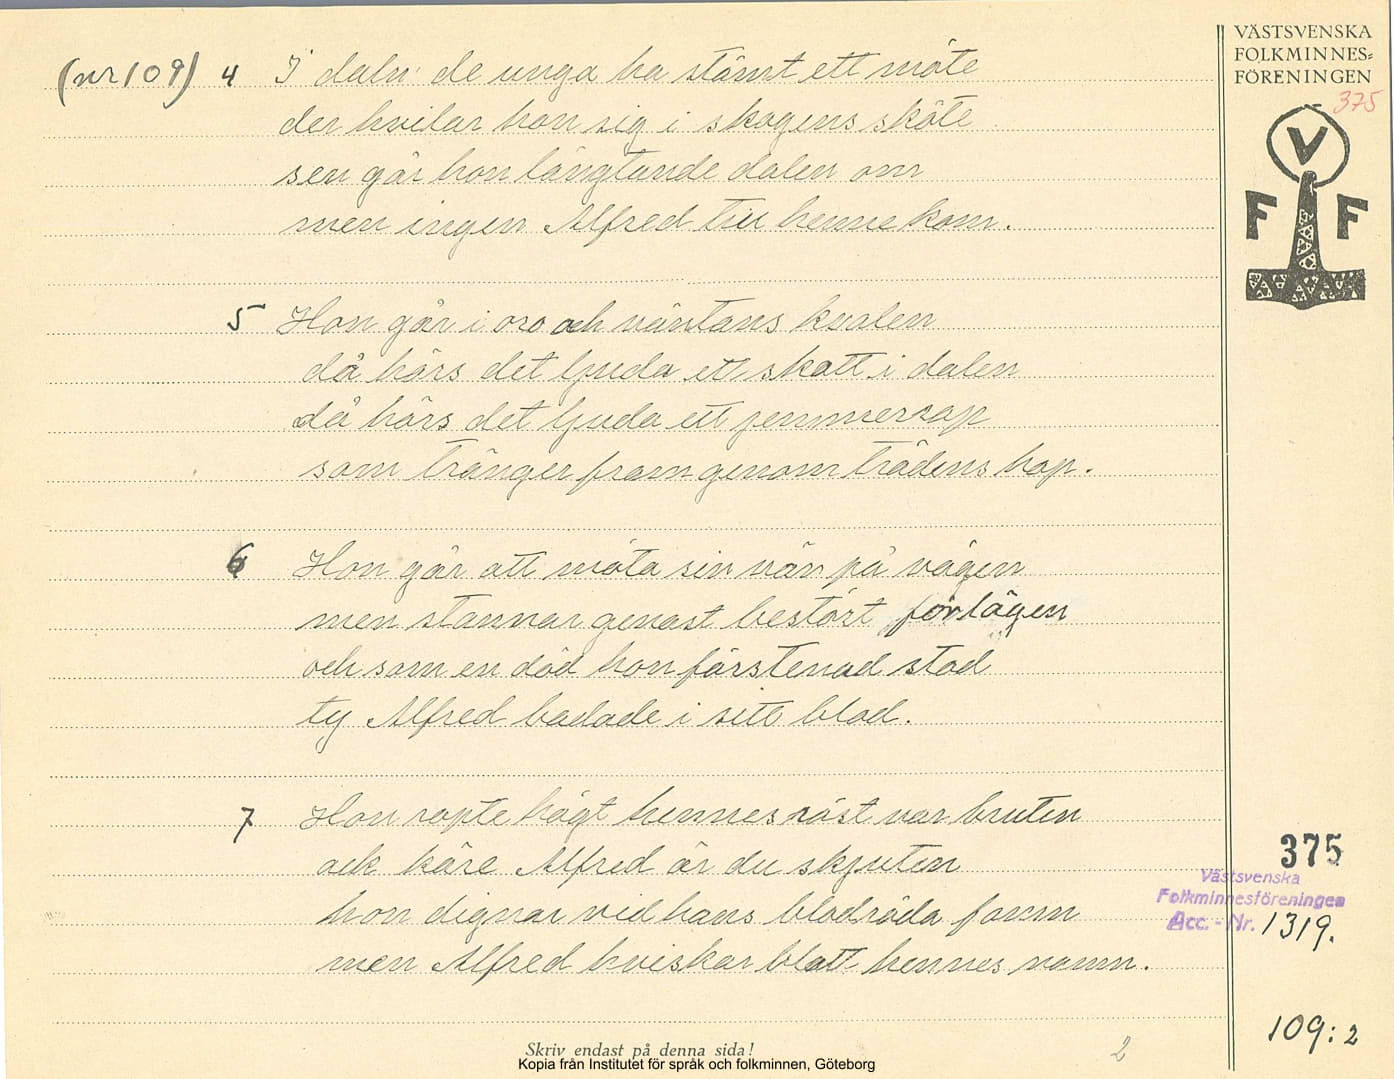 VÄSTSVENSKA
FOLKMINNES=
FÖRENINGEN
375
V
F F
(nr 109) 4 I daln de unga ha stämt ett möte
der hvilar hon sig i skogens sköte
sen går hon längtande dalen om
men ingen Alfred till henne kom.
5 Hon går i oro och väntans kvalen
då hörs det ljuda ett skott i dalen
då hörs det ljuda ett jemmerrop
som tränger fram genom trädens hop.
6 Hon går att möta sin vän på vägen
men stannar genast bestört förlägen
och som en död hon förstenad stod
ty Alfred badade i sitt blod.
7 Hon ropte högt hennes röst var bruten
ack käre Alfred är du skjuten
hon dignar vid hans blodröda famn
men Alfred hviskar blott hennes namn.
375
Västsvenska
Folkminnesföreningen
Acc. - Nr. 1319.
109:2
2
Skriv endast på denna sida!
Kopia från Institutet för språk och folkminnen, Göteborg